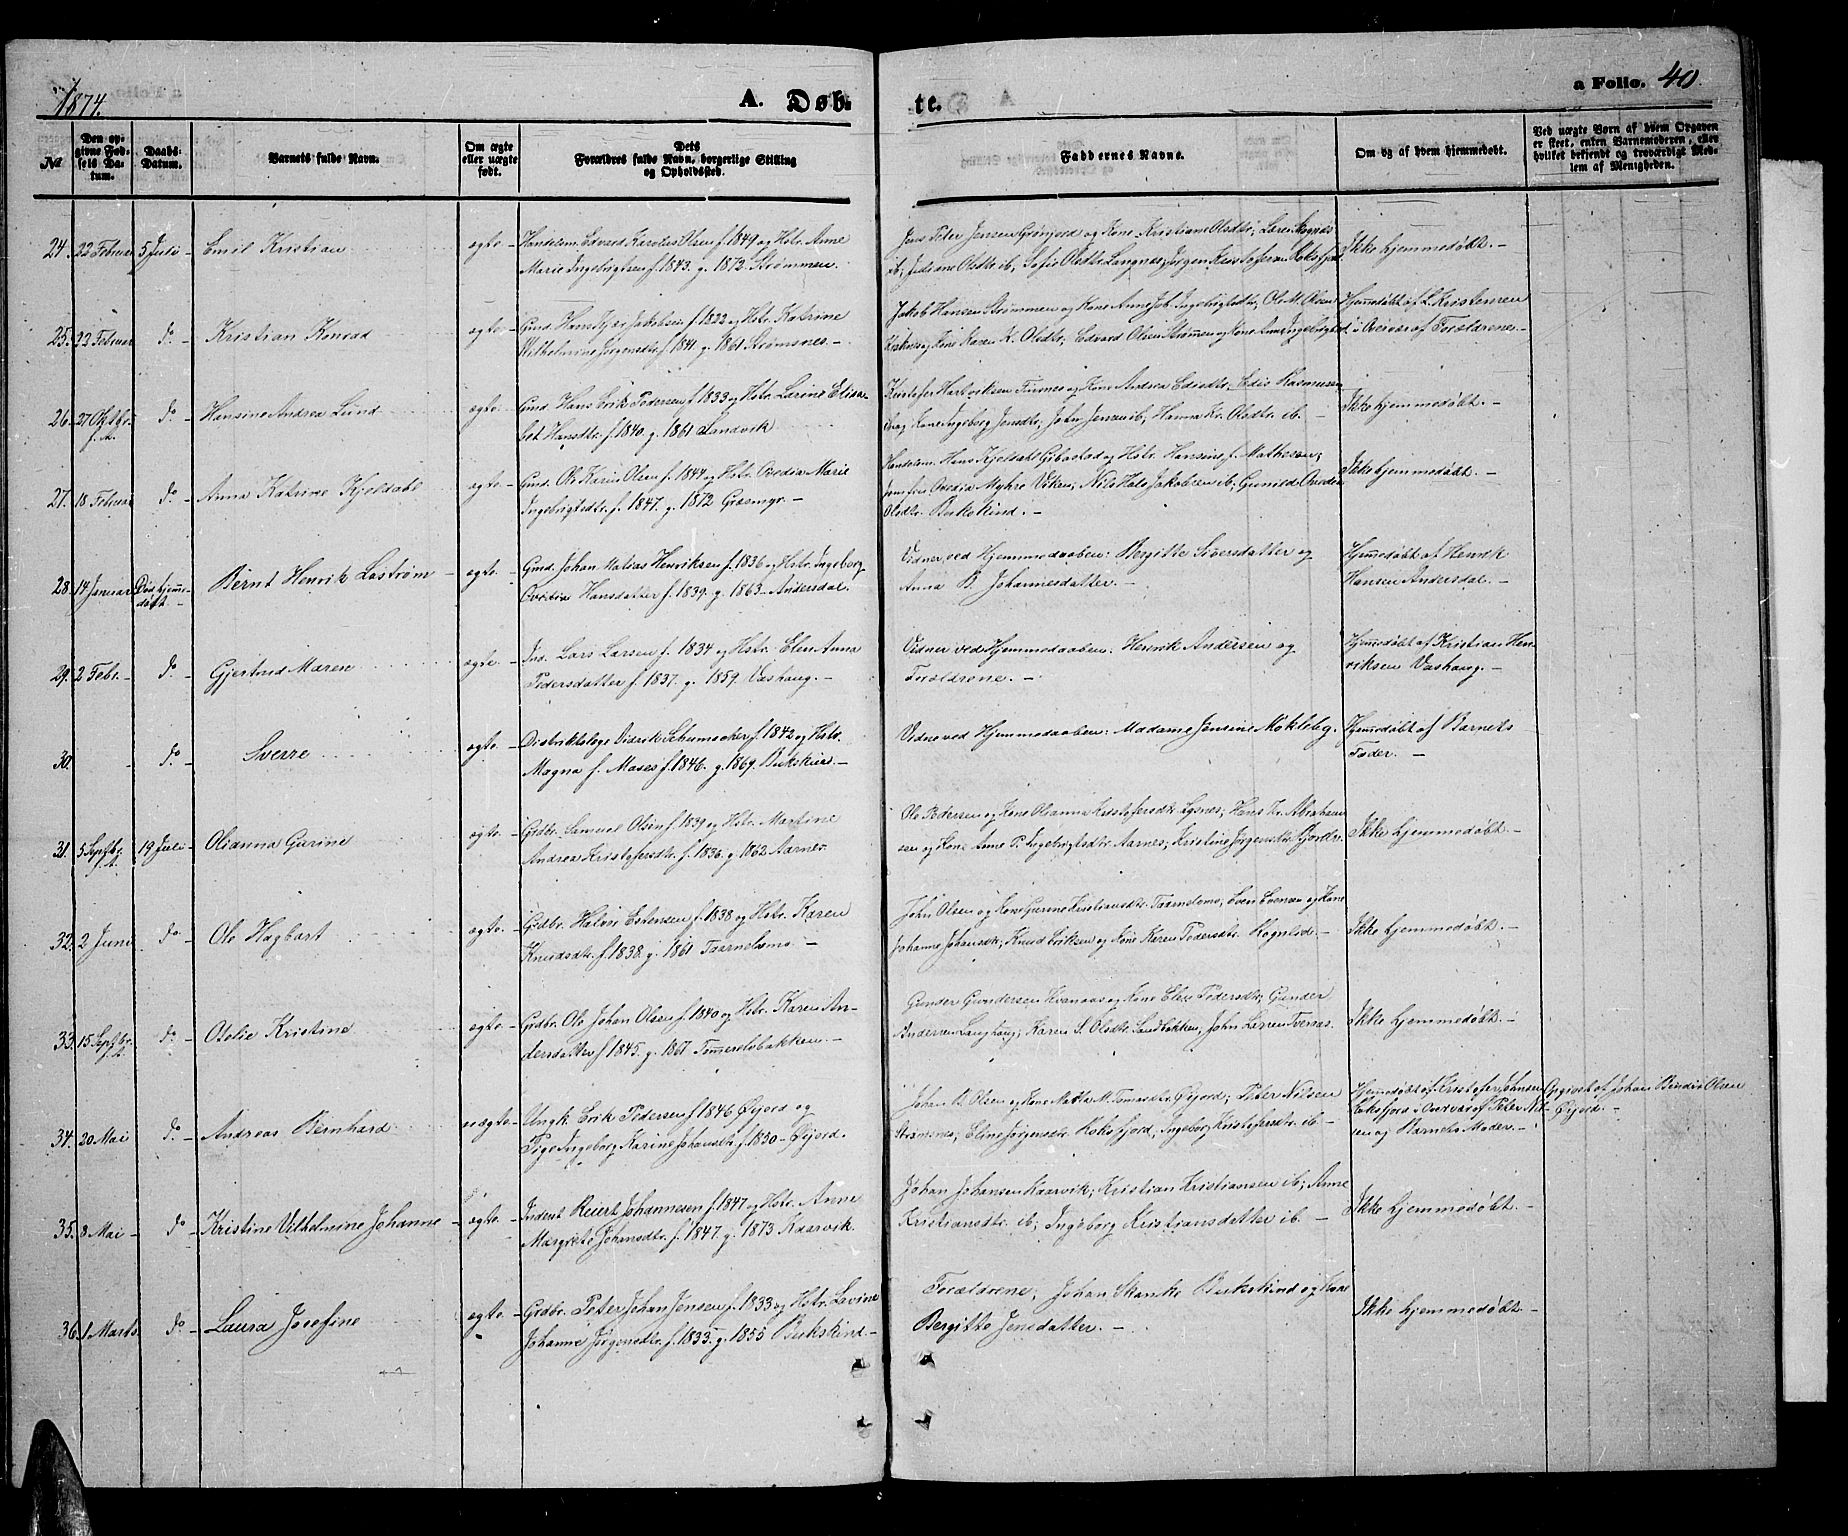 1874.
A. Døb-
te.
a Folio. 40.
No
Den op-
givne Fød-
sels Da-
tum.
Daabs-
Datum.
Barnets fulde Navn.
Om ægte
eller uægte
født.
Dets
Forældres fulde Navn, borgerlige Stilling
og Opholdssted.
Faddernes Navne.
Om og af hvem hjemmedøbt.
Ved uægte Børn af hvem Opgaven
er skeet, enten Barnemoderen, eller
hvilket bekjendt og troværdigt Med-
lem af Menigheden.
24. 22 Februar 5 Juli Emil Kristian ægte Handelsm. Edvard Karolus Olsen f. 1849 og Hstr. Anne
Marie Ingebrigtsen f. 1843. g. 1872. Strømmen.
Jens Peter Jensen Grønjord og Kone Kristiane Olsdtr; Lars
ib; Juliane Olsdtr ib; Sofie Olsdtr Langnes; Jørgen Kristofersen Roksfjord
Ikke hjemmedøbt. –
25. 22 Februar do – Kristian Konrad ægte – Gmd. Hans Kjær Jakobsen f. 1822 og Hstr. Katrine
Vilhelmine Jørgensdtr. f. 1841. g. 1861 Strømsnes. –
Jakob Hansen Strømmen og Kone Anne Job. Ingebrigtsdtr; Ole M. Olsen
og Kone Karen K. Olsdtr; Edvard Olsen Strømmen og Kone Anne Ingebrigtsd.
Hjemmedøbt af L. Kristensen
i Overvær af Forældrene. –
26. 27 Oktbr. f.A. do – Hansine Andrea Lund ægte – Gmd. Hans Erik Pedersen f. 1833 og Hstr. Larine Elisa-
bet Hansdtr. f. 1840. g. 1861 Sandvik
Kristofer Hartviksen Finnes og Kone Andrea Edisdtr; Edis Rasmussen
ib og Kone Ingeborg Jensdtr; John Jensen ib; Hanna Kr. Olsdtr ib. –
Ikke hjemmedøbt. –
27. 18 Februar do – Anna Katrine Kjeldahl ægte – Gmd. Ole Karius Olsen f. 1844 og Hstr. Ovedia Marie
Ingebrigtsdtr. f. 1847. g. 1872 Græsmyr. –
Handelsm. Hans Kjeldahl Gibostad og Hstr. Hansine f. Mathesen;
Jomfru Ovedia Myhre Viken; Nils Hals Jakobsen ib; Gunild Ovedia
Olsdtr. Bukskind. –
Ikke hjemmedøbt. –
28. 14 Januar Død hjemme-
døbt. – Bernt Henrik Løstrøm – ægte. – Gmd. Johan Matias Henriksen f. 1836 og Hstr. Ingeborg
Ovedia Hansdatter f. 1839. g. 1863. Andersdal.
Vidner ved Hjemmedaaben: Bergitte Siversdatter og
Anna B. Johannesdatter. –
Hjemmedøbt af Henrik
Hansen Andersdal. –
29. 2 Febr. – do – Gjertrud Maren ægte. – Ind. Lars Larsen f. 1834 og Hstr. Elen Anna
Pedersdatter f. 1837. g. 1859. Vashaug. –
Vidner ved Hjemmedaaben: Henrik Andersen og
Forældrene. –
Hjemmedøbt af Kristian Hen-
riksen Vashaug. –
30. – do – Sverre ægte. – Distriktslæge Didrik Schumacher f. 1842 og Hstr.
Magna f. Moses f. 1846. g. 1869. Bukskin. –
Vidne ved Hjemmedaaben: Madame Jensine Møklebg.
Hjemmedøbt af Barnets
Fader. –
31. 5 Septbr. f.A. 19 Juli – Olianna Gurine ægte – Grdbr. Samuel Olsen f. 1839 og Hstr. Martine
Andrea Kristofersdtr. f. 1836. g. 1862 Aarnes.
Ole Pedersen og Kone Olianna Kristofersdtr Lysnes; Hans Kr. Abraham-
sen og Kone Anne P. Ingebrigtsdtr Aarnes; Kristine Jørgensdtr Fjordbo.
Ikke hjemmedøbt. –
32. 2 Juni do – Ole Hagbart ægte. – Grdbr. Halvor Estensen f. 1838 og Hstr. Karen
Knudsdtr. f. 1838. g. 1861 Taarnelvmo –
John Olsen og Kone Gurine Kristiansdtr. Taarnelvmo; Even Evensen og Kone
Johanne Johansdtr; Knud Eriksen og Kone Karen Pedersdtr. Kognlid. –
Ikke hjemmedøbt. –
33. 15 Septbr. f.A. do – Otelie Kristine ægte – Grdbr. Ole Johan Olsen f. 1840 og Hstr. Karen An-
dersdatter f. 1845. g. 1867 Tømmerelvbakken. –
Gunder Gundersen Kvanaas og Kone Elen Pedersdtr; Gunder
Andersen Langhaug; Karen S. Olsdtr. Sandbakken; John Larsen Tvernes.
Ikke hjemmedøbt. –
34. 20 Mai do – Andreas Bernhard uægte – Ungk. Erik Pedersen f. 1846 Øyjord og
Pige Ingeborg Karine Johansdtr. f. 1850 – Øijord.
Johan B. Olsen og Kone Malla M. Tomasdtr Øijord; Peter Nilsen
Strømsnes; Eline Jørgensdtr. Roksfjord; Ingeborg Kristofersdtr ib. –
Hjemmedøbt af Kristofer Johnsen
Roksfjord i Overvær af Peter Nil-
sen og Barnets Moder. –
Opgivet af Johan Bendix Olsen
Øijord. –
35. 8 Mai – do – Kristine Vilhelmine Johanne – ægte. – Inderst Reiert Johannesen f. 1847. og Hstr. Anne
Margrete Johansdtr. f. 1847. g. 1873 Kaarvik.
Johan Johansen Kaarvik; Kristian Kristiansen ib; Anne
Kristiansdtr. ib; Ingeborg Kristiansdatter ib. –
Ikke hjemmedøbt. –
36. 1 Marts do – Laura Josefine ægte – Grdbr. Peter Johan Jensen f. 1833 og Hstr. Lovine
Johanne Jørgensdtr. f. 1833. g. 1855 Bukskind –
Forældrene; Johan Skanke Bukskind og Kone
Bergitte Jensdatter. –
Ikke hjemmedøbt –